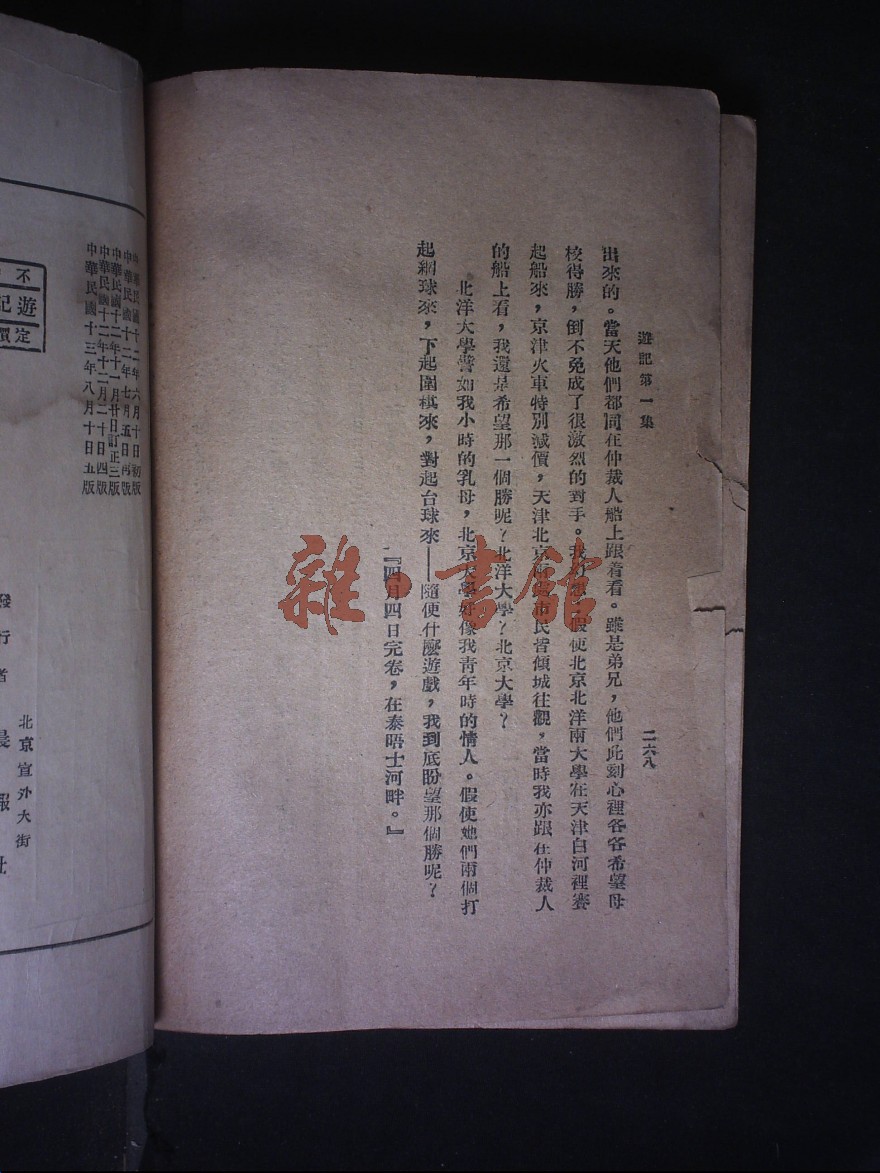 遊記第一集
二六八
出來的。當天他們都同在仲裁人船上跟着看。雖是弟兄，他們此刻心裡各各希望母
校得勝，倒不免成了很激烈的對手。我幻想，假使北京北洋兩大學在天津白河裡賽
起船來，京津火車特別減價，天津北京兩處市民皆傾城往觀，當時我亦跟在仲裁人
的船上看，我還是希望那一個勝呢？北洋大學？北京大學？
北洋大學譬如我小時的乳母，北京大學好像我青年時的情人。假使她們兩個打
起網球來，下起圍棋來，對起台球來——隨便什麼遊戲，我到底盼望那個勝呢？
『四月四日完卷，在泰晤士河畔。』
雜·書館
中華民國十二年六月十日初版
中華民國十二年七月五日再版
中華民國十二年十一月廿日訂正三版
中華民國十二年十二月二十日四版
中華民國十三年八月十日五版
不
遊記
定價
北京宣外大街
發行者 晨報社